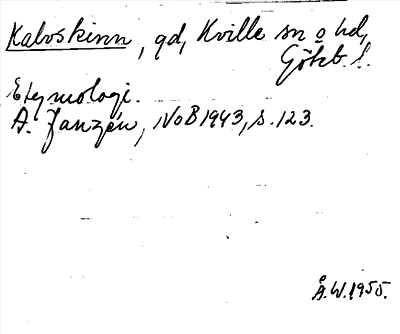 Kalvskinn, gd, Kville sn o hd,
Götb. l.
Etymologi.
A. Janzén, NoB 1943, s. 123.
Å.W. 1955.